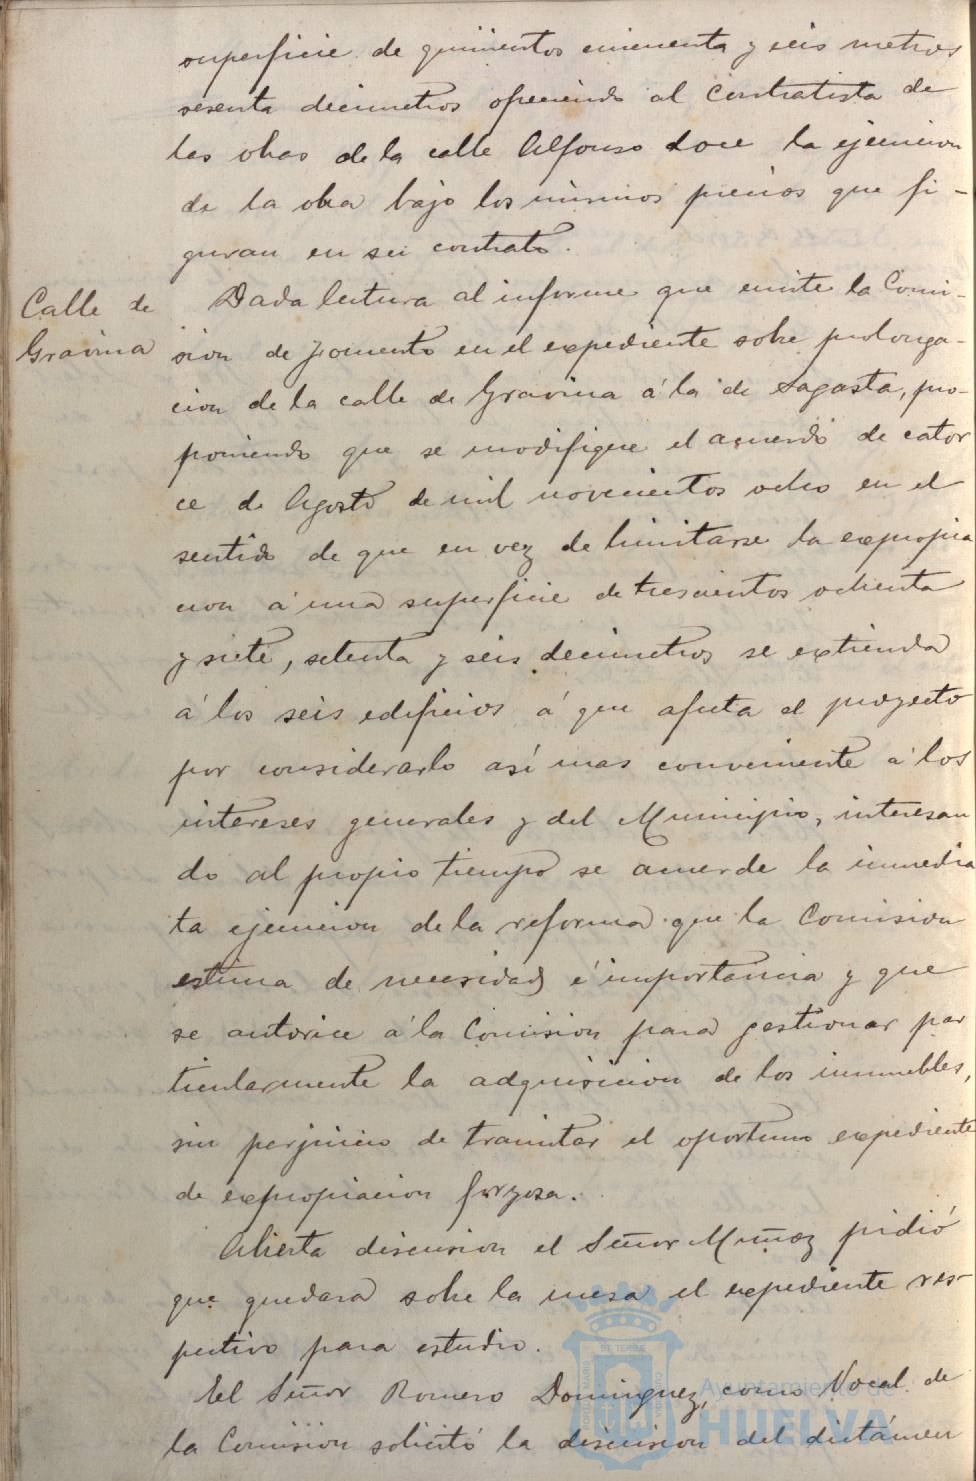 superficie de quinientos cincuenta y seis metros
sesenta decimetros ofreciendo al Contratista de
las obras de la calle Alfonso doce la ejecucion
de la obra bajo los mismos precios que fi-
guran en su contrato.
Calle de
Gravina
Dada lectura al informe que emite la Comi-
sion de Fomento en el expediente sobre prolonga-
cion de la calle de Gravina á la de Sagasta, pro-
poniendo que se modifique el acuerdo de cator
ce de Agosto de mil novecientos ocho en el
sentido de que en vez de limitarse la expropia
cion á una superficie de trescientos ochenta
y siete, setenta y seis decimetros se extienda
á los seis edificios á que afecta el proyecto
por considerarlo así mas conveniente á los
intereses generales y del Municipio, interesan
do al propio tiempo se acuerde la inmedia
ta ejecucion de la reforma que la Comision
estima de necesidad é importancia y que
se autorice á la Comision para gestionar par
ticularmente la adquisicion de los inmuebles,
sin perjuicio de tramitar el oportuno expediente
de expropiacion forzosa.
Abierta discusion el Señor Muñoz pidió
que quedara sobre la mesa el expediente res-
pectivo para estudio.
El Señor Romero Dominguez, como Vocal de
la Comision solicitó la discusion del dictámen
Ayuntamiento de
HUELVA